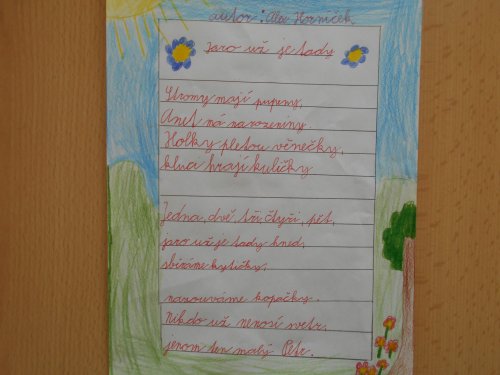 autor: Ola Horníček
Jaro už je tady
Stromy mají pupeny,
Anet má narozeniny.
Holky pletou věnečky,
kluci hrají kuličky.
Jedna, dvě, tři, čtyři, pět,
jaro už je tady hned,
sbíráme kytičky,
nazouváme kopačky.
Nikdo už nenosí svetr,
jenom ten malý Petr.